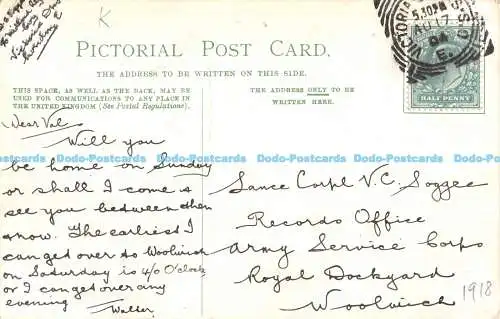 K
PICTORIAL POST CARD.
THE ADDRESS TO BE WRITTEN ON THIS SIDE.
THIS SPACE, AS WELL AS THE BACK, MAY BE
USED FOR COMMUNICATIONS TO ANY PLACE IN
THE UNITED KINGDOM (See Postal Regulations).
THE ADDRESS ONLY TO BE
WRITTEN HERE.
VICTORIA
S.O.
5.30PM
AU 17
04
E.
HALF PENNY
Dear Val
Will you
be home on Sunday
or shall I come &
see you between then
& now. The earliest I
can get over to Woolwich
on Saturday is 4/0 O'clock
or I can get over any
evening
Walter
Lance Corpl V.C. Soggee
Records Office
Army Service Corps
Royal Dockyard
Woolwich
1918
Dodo-Postcards Dodo-Postcards Dodo-Postcards Dodo-Postcards Dodo-Postcards Dodo-Postcards